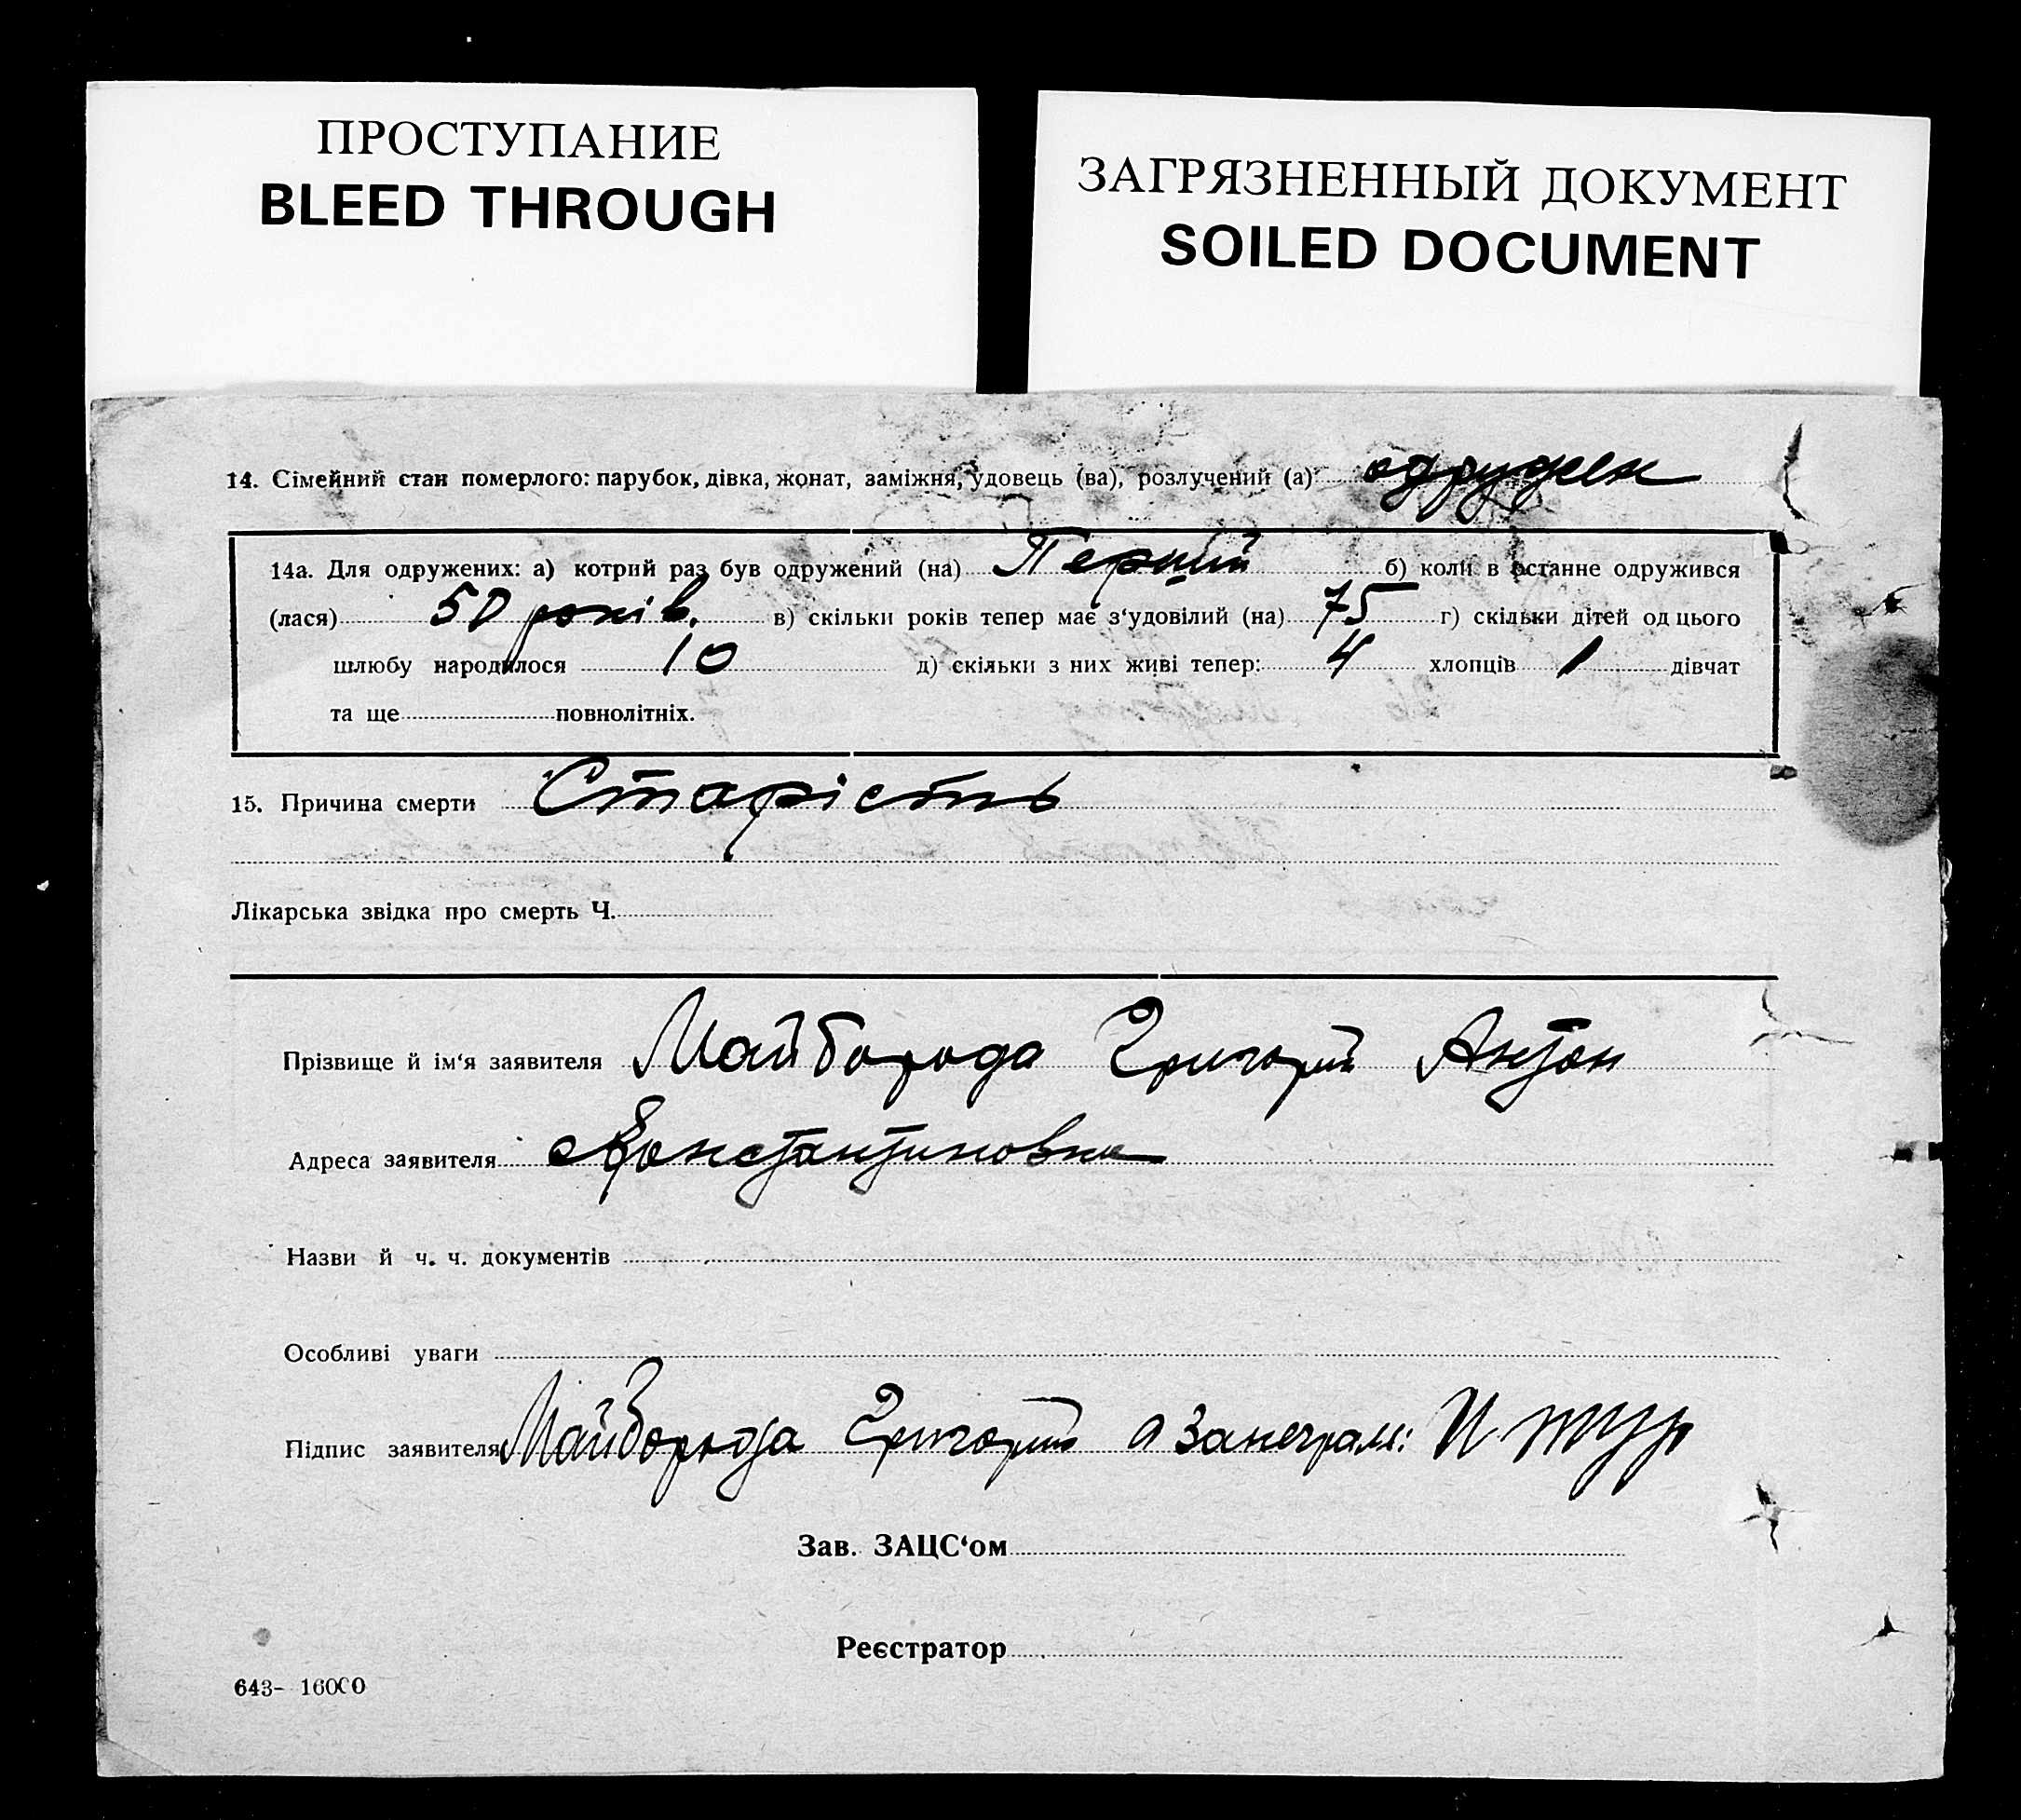 ПРОСТУПАНИЕ
BLEED THROUGH
ЗАГРЯЗНЕННЫЙ ДОКУМЕНТ
SOILED DOCUMENT
14. Сімейний стан померлого: парубок, дівка, жонат, заміжня, удовець (ва), розлучений (а) одружен
14а. Для одружених: а) котрий раз був одружений (на) Перший б) коли в останне одружився
(лася) 50 років. в) скільки років тепер має з‘удовілий (на) 75 г) скільки дітей од цього
шлюбу народилося 10 д) скільки з них живі тепер: 4 хлопців 1 дівчат
та ще повнолітніх.
15. Причина смерти Старість
Лікарська звідка про смерть Ч.
Прізвище й ім‘я заявителя Майборода Григорий Антон
Адреса заявителя с Константиновка
Назви й ч. ч. документів
Особливі уваги
Підпис заявителя Майборода Григорий а
Зав. ЗАЦС‘ом
Реєстратор
643- 16000